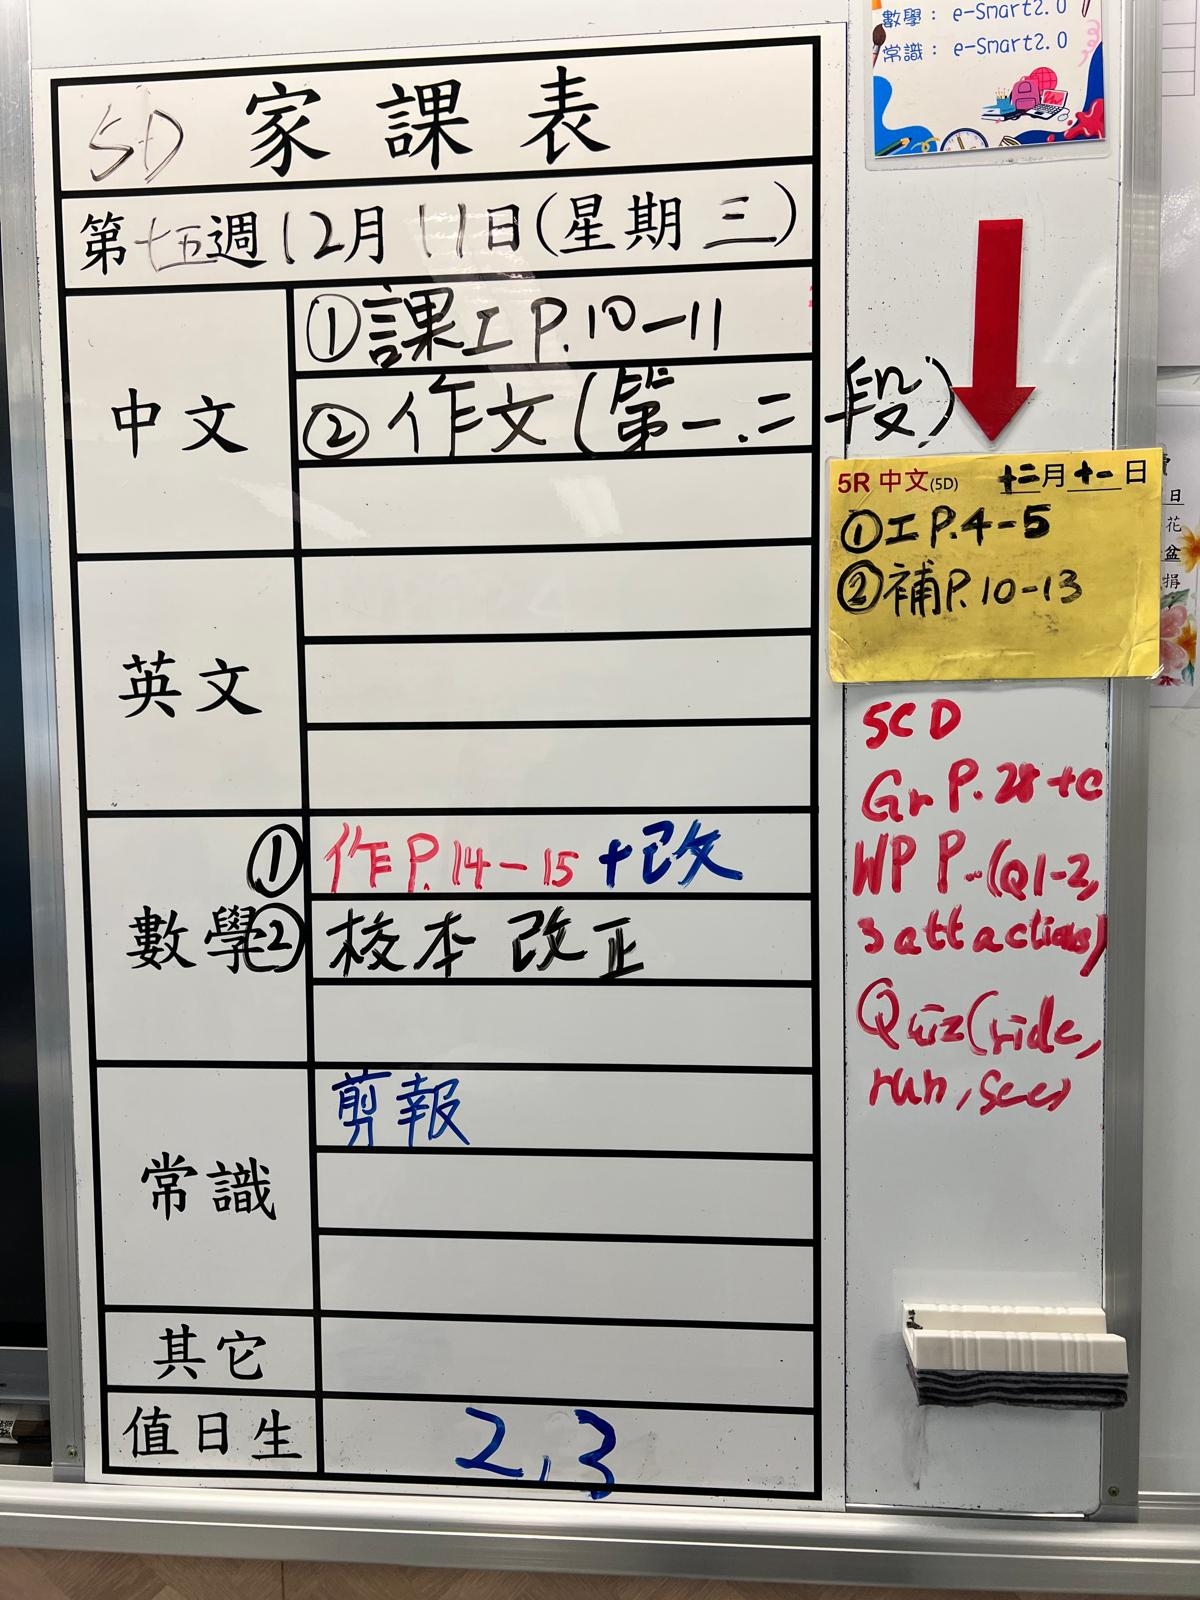 5D 家課表
第十五週12月11日(星期三)
中文
①課工P.10-11
②作文(第一.二段)
英文
數學
①作P.14-15+改
②校本 改正
常識
剪報
其它
值日生
2,3
數學：e-Smart2.0
常識：e-Smart2.0
5R 中文(5D) 十二月十一日
①工P.4-5
②補P.10-13
5CD
Gr P.28+c
WP P..(Q1-2,
3 attractions)
Quiz(ride,
run, see)
日
花
盆
捐